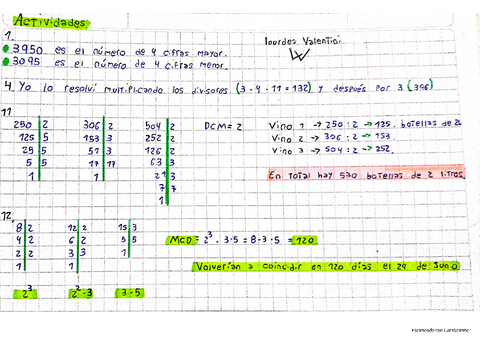 Actividades
1.
3950 es el número de 4 cifras mayor.
3095 es el número de 4 cifras menor.
Lourdes Valentini
4 Yo lo resolví multiplicando los divisores (3·4·11=132) y después por 3 (396)
11
250 2
125 5
25 5
5 5
1
306 2
153 3
51 3
17 17
1
504 2
252 2
126 2
63 3
21 3
7 7
1
DCM = 2
Vino 1 → 250 : 2 → 125. botellas de 2L
Vino 2 → 306 : 2 → 153
Vino 3 → 504 : 2 → 252.
En total hay 530 botellas de 2 litros.
12,
8 2
4 2
2 2
1
2³
12 2
6 2
3 3
1
2²·3
15 3
5 5
1
3·5
MCD = 2³·3·5 = 8·3·5 = 120
Volverían a coincidir en 120 días el 29 de Junio
Escaneado con CamScanner